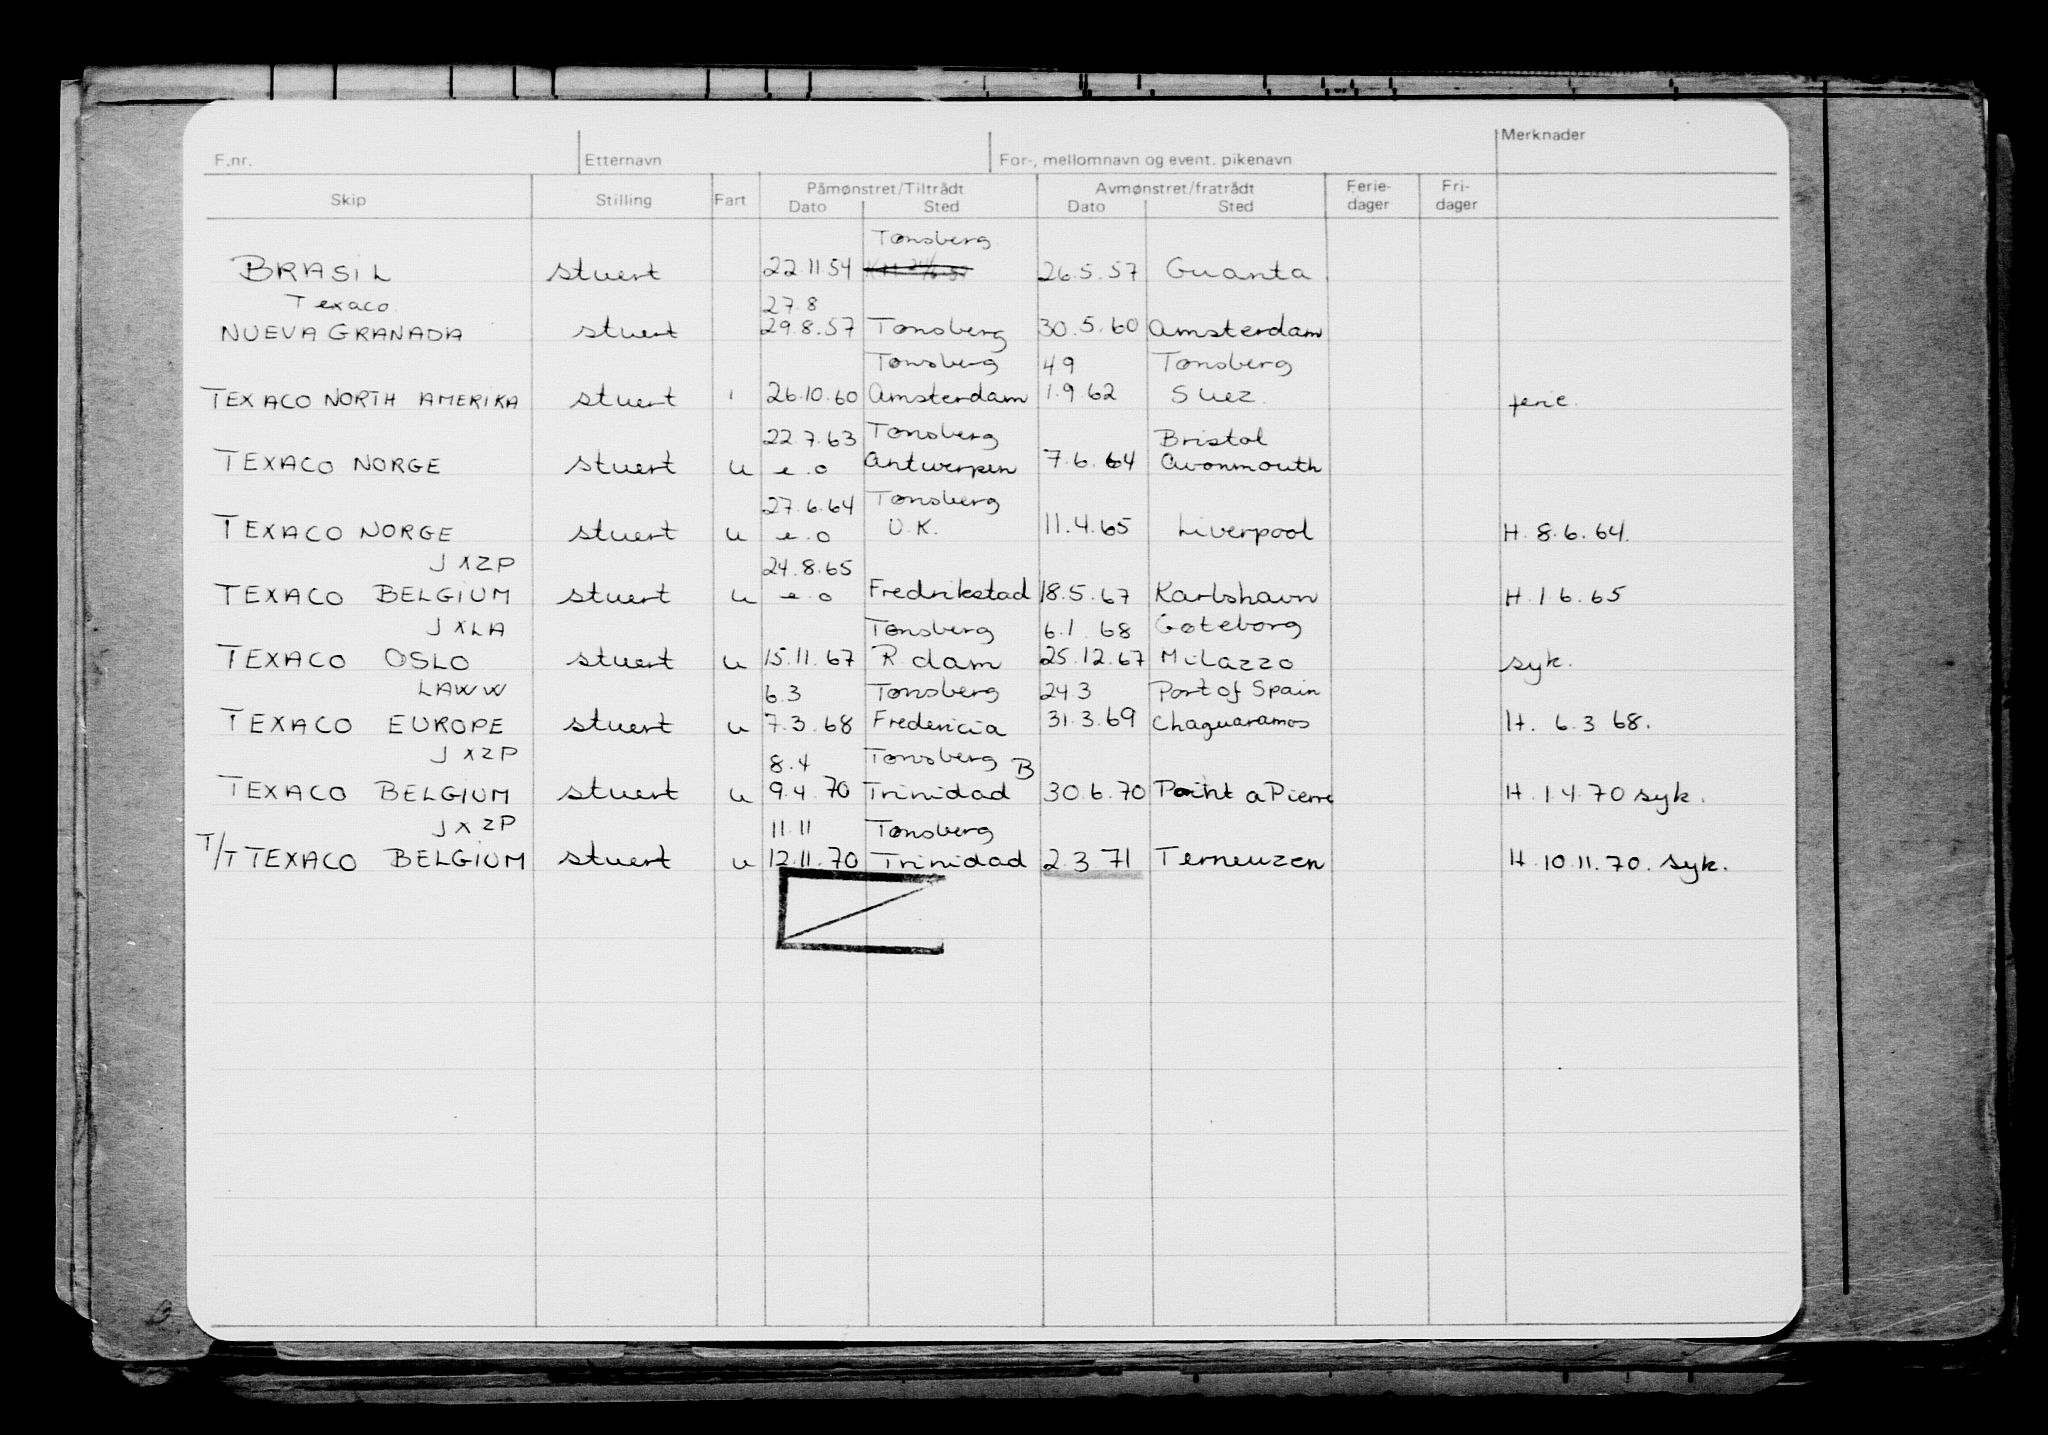 F.nr. Etternavn For-, mellomnavn og event. pikenavn Merknader
Skip Stilling Fart Påmønstret/Tiltrådt Avmønstret/fratrådt Ferie- Fri-
Dato Sted Dato Sted dager dager
Tønsberg
BRASIL stuert 22.11.54 26.5.57 Guanta
Texaco 27.8
NUEVA GRANADA stuert 29.8.57 Tønsberg 30.5.60 Amsterdam
Tønsberg 4 9 Tønsberg
TEXACO NORTH AMERIKA stuert 26.10.60 Amsterdam 1.9 62 Suez ferie.
22.7.63 Tønsberg Bristol
TEXACO NORGE stuert u e.o Antwerpen 7.6.64 Avonmouth
27.6.64 Tønsberg
TEXACO NORGE stuert u e.o U.K. 11.4.65 Liverpool H. 8.6.64.
JXZP 24.8.65
TEXACO BELGIUM stuert u e.o Fredrikstad 18.5.67 Karlshavn H. 1 6.65
JXLA Tønsberg 6.1 68 Gøteborg
TEXACO OSLO stuert u 15.11.67 R.dam 25.12.67 Milazzo syk.
LAWW 6.3 Tønsberg 24 3 Port of Spain
TEXACO EUROPE stuert u 7.3.68 Fredericia 31.3.69 Chaguaramos H. 6.3 68.
JXZP 8.4 Tønsberg B
TEXACO BELGIUM stuert u 9.4.70 Trinidad 30.6.70 Point a Pierre H. 1 4.70 syk.
JXZP 11.11 Tønsberg
T/T TEXACO BELGIUM stuert u 12.11.70 Trinidad 2.3.71 Terneuzen H. 10.11.70. syk.